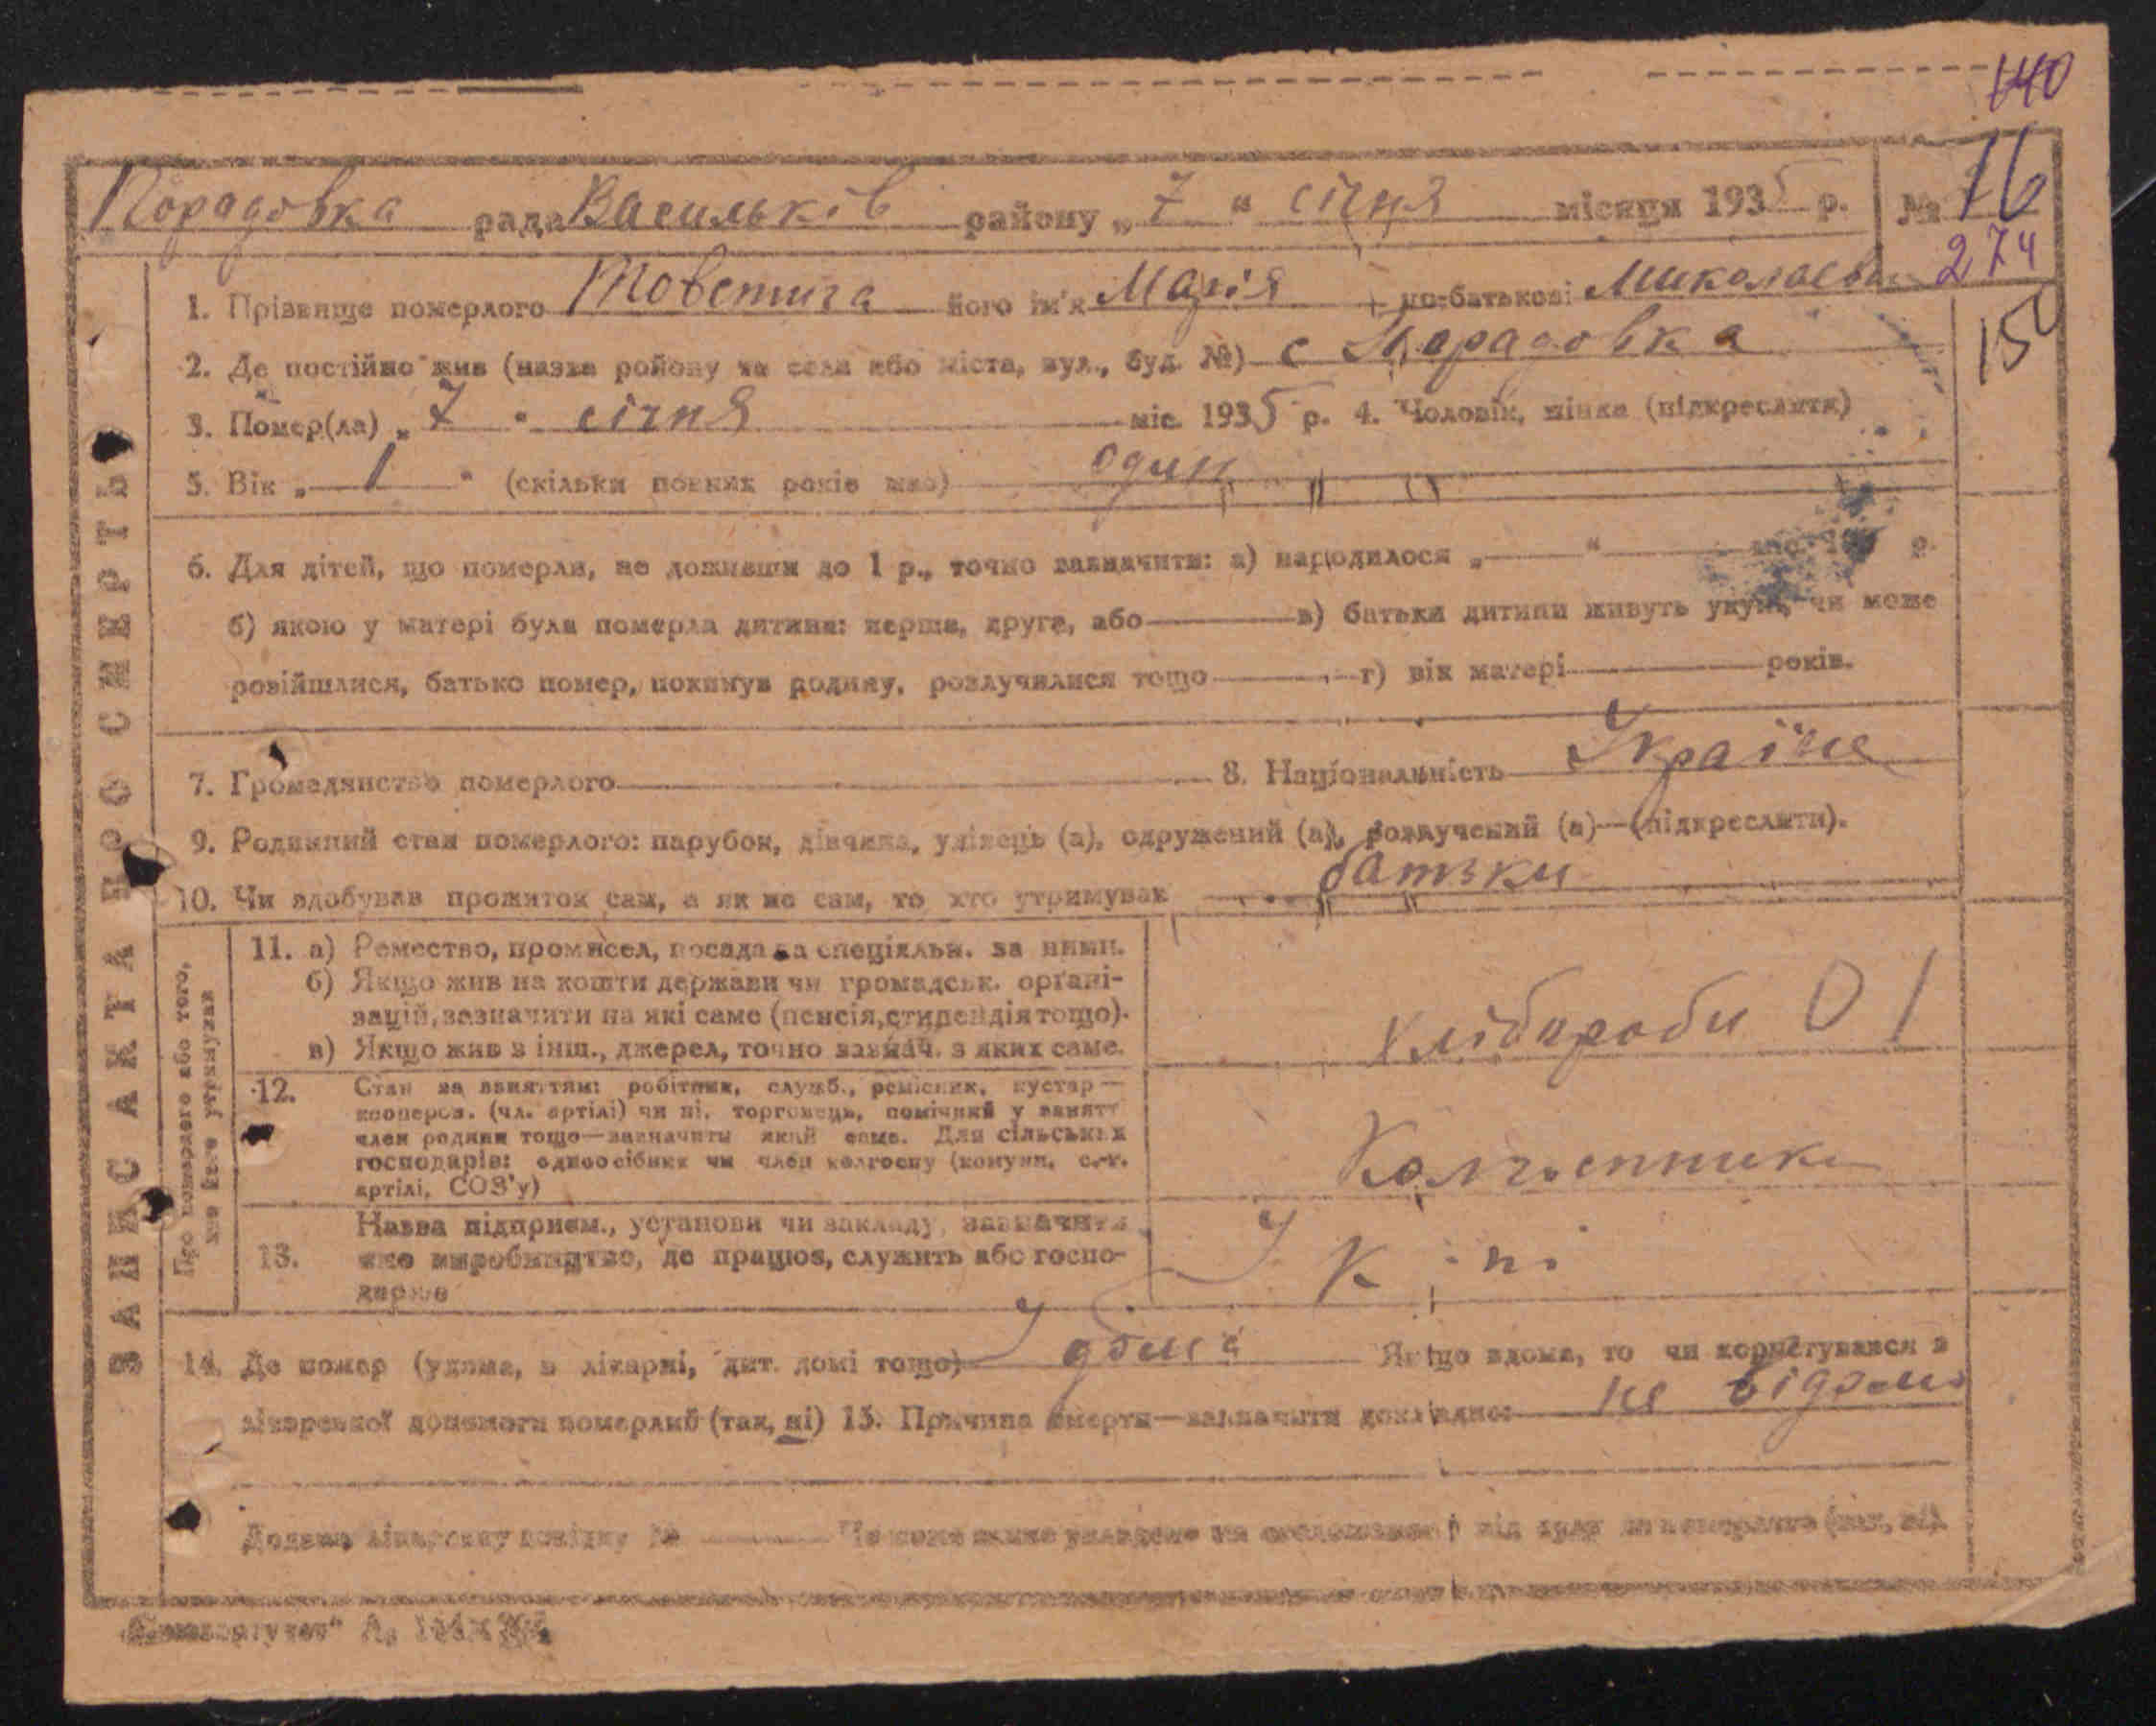 140
Порадовка рада Васильків району „ 7 “ січня місяця 1935 р. № 16
274
1. Прізвище померлого Товстига його ім'я Марія по-батькові Миколаєва
150
2. Де постійно жив (назва району та села або міста, вул., буд. №) с Порадовка
3. Помер(ла) „ 7 “ січня міс. 1935 р. 4. Чоловік, жінка (підкреслити)
5. Вік „ 1 “ (скільки повних років мав) один
6. Для дітей, що померли, не доживши до 1 р., точно зазначити: а) народилося „ “ р.
б) якою у матері була померла дитина: перша, друга, або в) батьки дитини живуть укупі, чи може
розійшлися, батько помер, покинув родину, розлучилися тощо г) вік матері років.
7. Громадянство померлого 8. Національність Україне
9. Родинний стан померлого: парубок, дівчина, удівець (а), одружений (а), розлучений (а)—(підкреслити).
10. Чи здобував прожиток сам, а як не сам, то хто утримував батьки
ЗАПИС АКТА ПРО СМЕРТЬ
Про померлого або того, хто його утримував
11. а) Ремество, промисел, посада та спеціяльн. за ними.
б) Якщо жив на кошти держави чи громадськ. органі-
зацій, зазначити на які саме (пенсія, стипендія тощо).
в) Якщо жив з інш., джерел, точно зазнач. з яких саме.
Хлібороби 01
12. Стан за заняттям: робітник, служб., ремісник, кустар—
кооперов. (чл. артілі) чи ні, торговець, помічний у занятт
член родини тощо—зазначити який саме. Для сільських
господарів: одноосібник чи член колгоспу (комуни, с.-г.
артілі, СОЗ'у)
Колгоспники
13. Назва підприєм., установи чи закладу, зазначити
яке виробництво, де працює, служить або госпо-
дарює
14. Де помер (удома, в лікарні, дит. домі тощо) Удома Якщо вдома, то чи користувався з
лікарської допомоги померлий (так, ні) 15. Причина смерти—зазначити докладно: не відомо
Додано лікарську довідку №